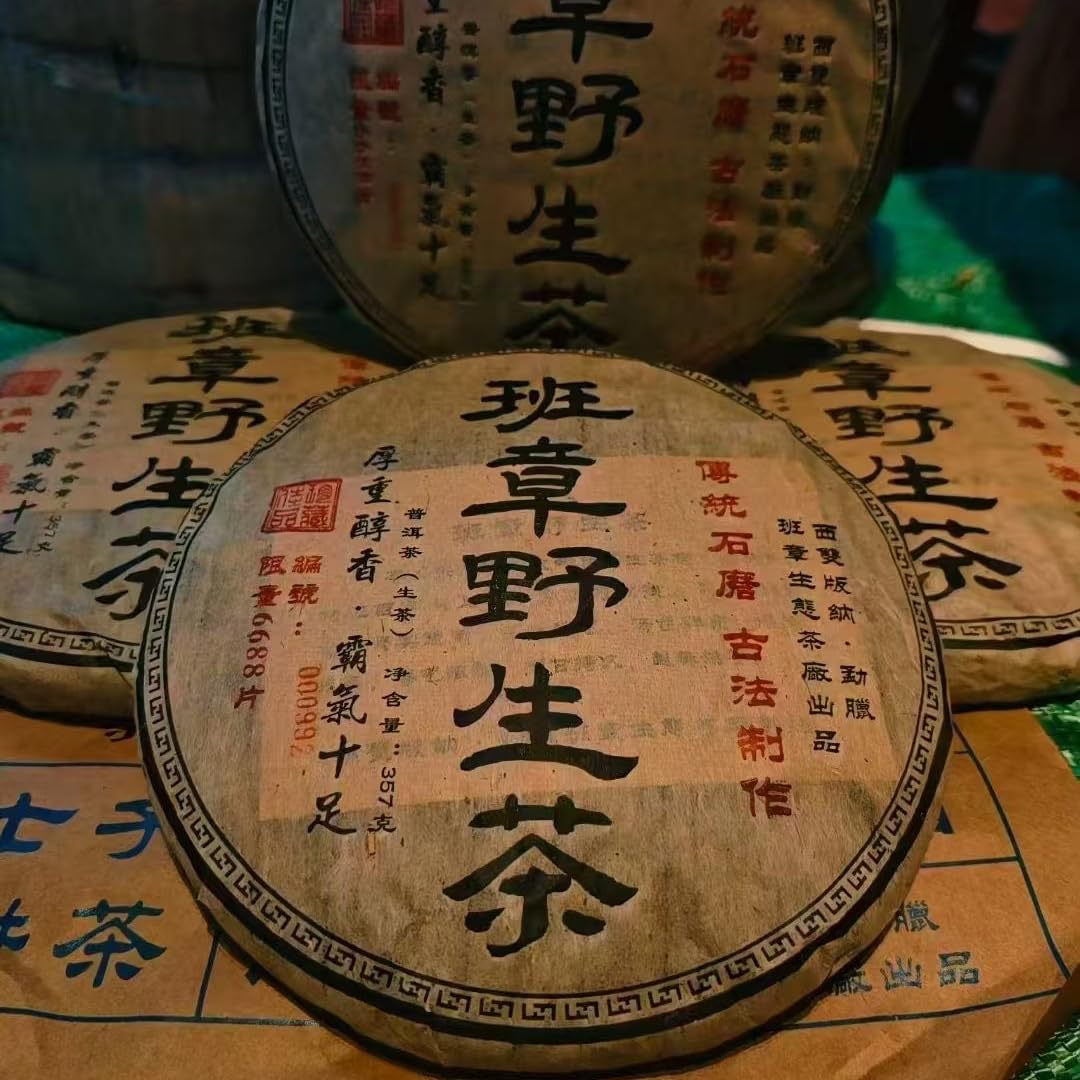 班章野生茶
傳統石磨 古法制作
西雙版納·勐臘
班章生態茶廠出品
普洱茶(生茶) 净含量:357克
厚重醇香·霸氣十足
珍藏佳品
編號:000992
限量6688片
章野生茶
統石磨 古法制作
醇香·霸氣十足
班章野生茶
厚重醇香·霸氣十足
章野生茶
茶
臘
廠出品